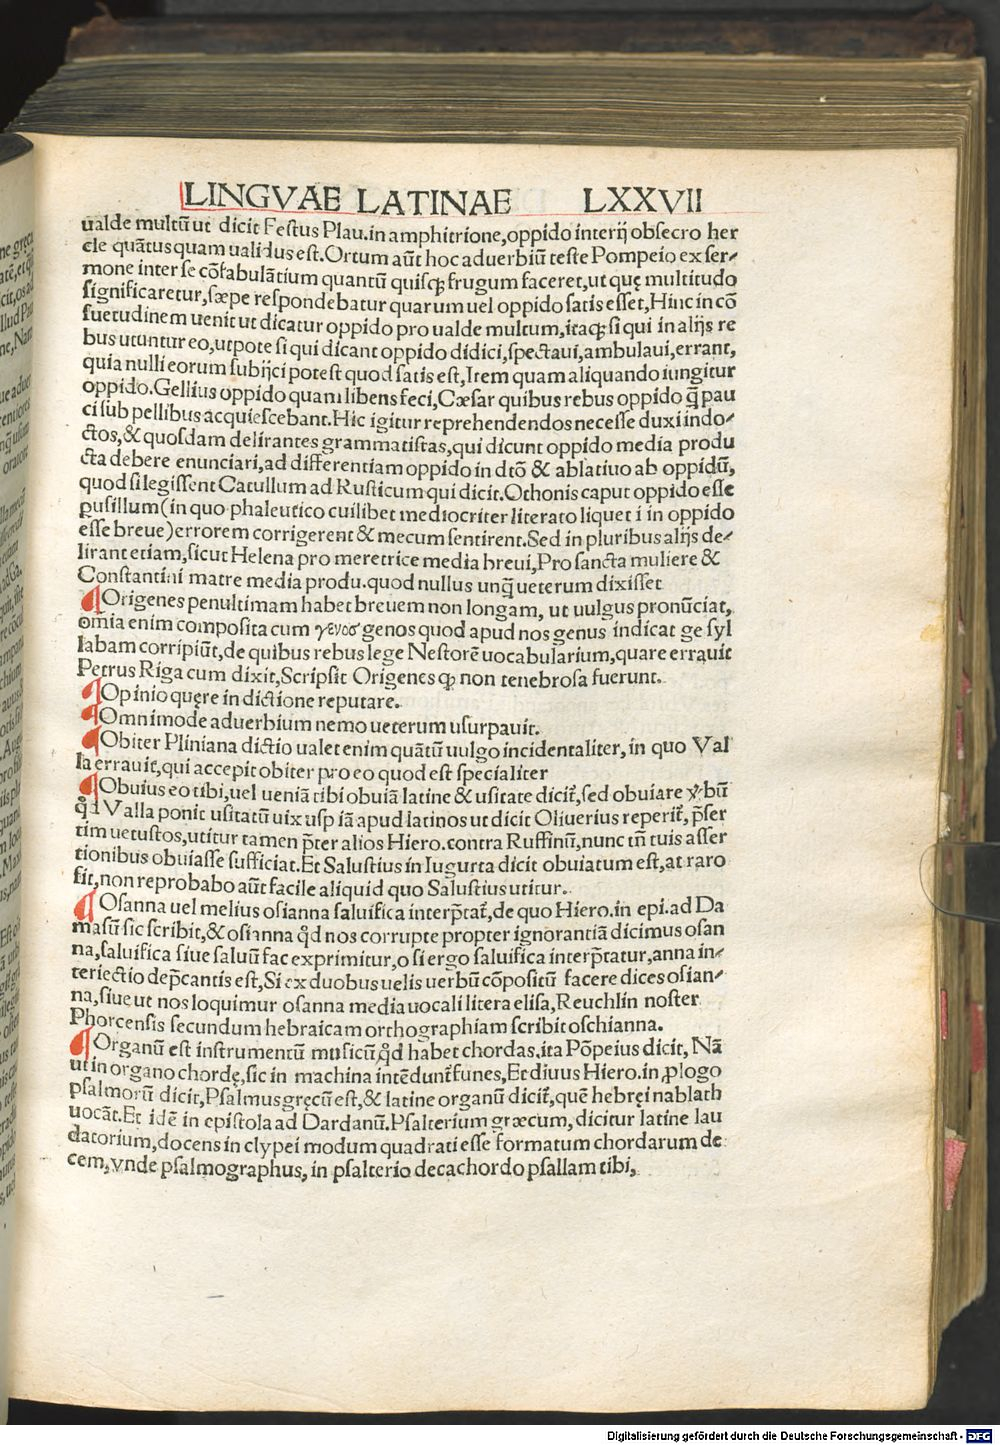 LINGVAE LATINAE LXXVII
ualde multū ut dicit Festus Plau. in amphitrione, oppido interij obsecro her
cle quātus quam ualidus est. Ortum aūt hoc aduerbiū teste Pompeio ex ser-
mone inter se cōfabulātium quantū quisq; frugum faceret, ut quę multitudo
significaretur, sæpe respondebatur quarum uel oppido satis esset, Hinc in cō
suetudinem uenit ut dicatur oppido pro ualde multum, itaq; si qui in alijs re
bus utuntur eo, utpote si qui dicant oppido didici, spectaui, ambulaui, errant,
quia nulli eorum subijci potest quod satis est, Item quam aliquando iungitur
oppido. Gellius oppido quam libens feci, Cæsar quibus rebus oppido q̄ pau
ci sub pellibus acquiescebant. Hic igitur reprehendendos necesse duxi indo-
ctos, & quosdam delirantes grammatistas, qui dicunt oppido media produ
cta debere enunciari, ad differentiam oppido in dtō & ablatiuo ab oppidū,
quod si legissent Catullum ad Rusticum qui dicit. Othonis caput oppido esse
pusillum (in quo phaleutico cuilibet mediocriter literato liquet i in oppido
esse breue) errorem corrigerent & mecum sentirent. Sed in pluribus alijs de-
lirant etiam, sicut Helena pro meretrice media breui, Pro sancta muliere &
Constantini matre media produ. quod nullus unq̄ ueterum dixisset
¶ Origenes penultimam habet breuem non longam, ut uulgus pronūciat,
omīa enim composita cum γενοσ genos quod apud nos genus indicat ge syl
labam corripiūt, de quibus rebus lege Nestorē uocabularium, quare errauit
Petrus Riga cum dixit, Scripsit Origenes q; non tenebrosa fuerunt.
¶ Opinio quęre in dictione reputare.
¶ Omnimode aduerbium nemo ueterum usurpauit.
¶ Obiter Pliniana dictio ualet enim quātū uulgo incidentaliter, in quo Val
la errauit, qui accepit obiter pro eo quod est specialiter
¶ Obuius eo tibi, uel ueniā tibi obuiā latine & usitate dicit̄, sed obuiare ꝟbū
qd̄ Valla ponit usitatū uix usp iā apud latinos ut dicit Oliuerius reperit̄, p̄ser
tim uetustos, utitur tamen p̄ter alios Hiero. contra Ruffinū, nunc tn̄ tuis asser
tionibus obuiasse sufficiat. Et Salustius in Iugurta dicit obuiatum est, at raro
fit, non reprobabo aūt facile aliquid quo Salustius utitur.
¶ Osanna uel melius osianna saluifica interp̄tat̄, de quo Hiero. in epi. ad Da
masū sic scribit, & osianna qd̄ nos corrupte propter ignorantiā dicimus osan
na, saluifica siue saluū fac exprimitur, o si ergo saluifica interp̄tatur, anna in-
teriectio dep̄cantis est, Si ex duobus uelis uerbū cōpositū facere dices osian-
na, siue ut nos loquimur osanna media uocali litera elisa, Reuchlin noster
Phorcensis secundum hebraicam orthographiam scribit oschianna.
¶ Organū est instrumentū musicū qd̄ habet chordas. ita Pōpeius dicit, Nā
ut in organo chordę, sic in machina intēdunt̄ funes, Et diuus Hiero. in ꝓlogo
psalmorū dicit, Psalmus gręcū est, & latine organū dicit̄, quē hebręi nablath
uocāt. Et idē in epistola ad Dardanū. Psalterium græcum, dicitur latine lau
datorium, docens in clypei modum quadrati esse formatum chordarum de
cem, vnde psalmographus, in psalterio decachordo psallam tibi,
Digitalisierung gefördert durch die Deutsche Forschungsgemeinschaft - DFG